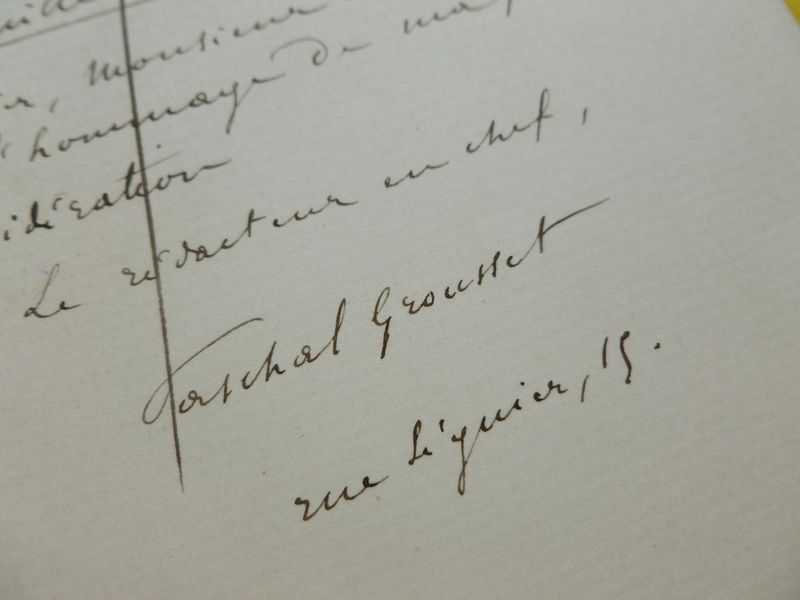 er, Monsieur
l'hommage de ma
idération
Le rédacteur en chef,
Paschal Grousset
rue Séguier, 15.